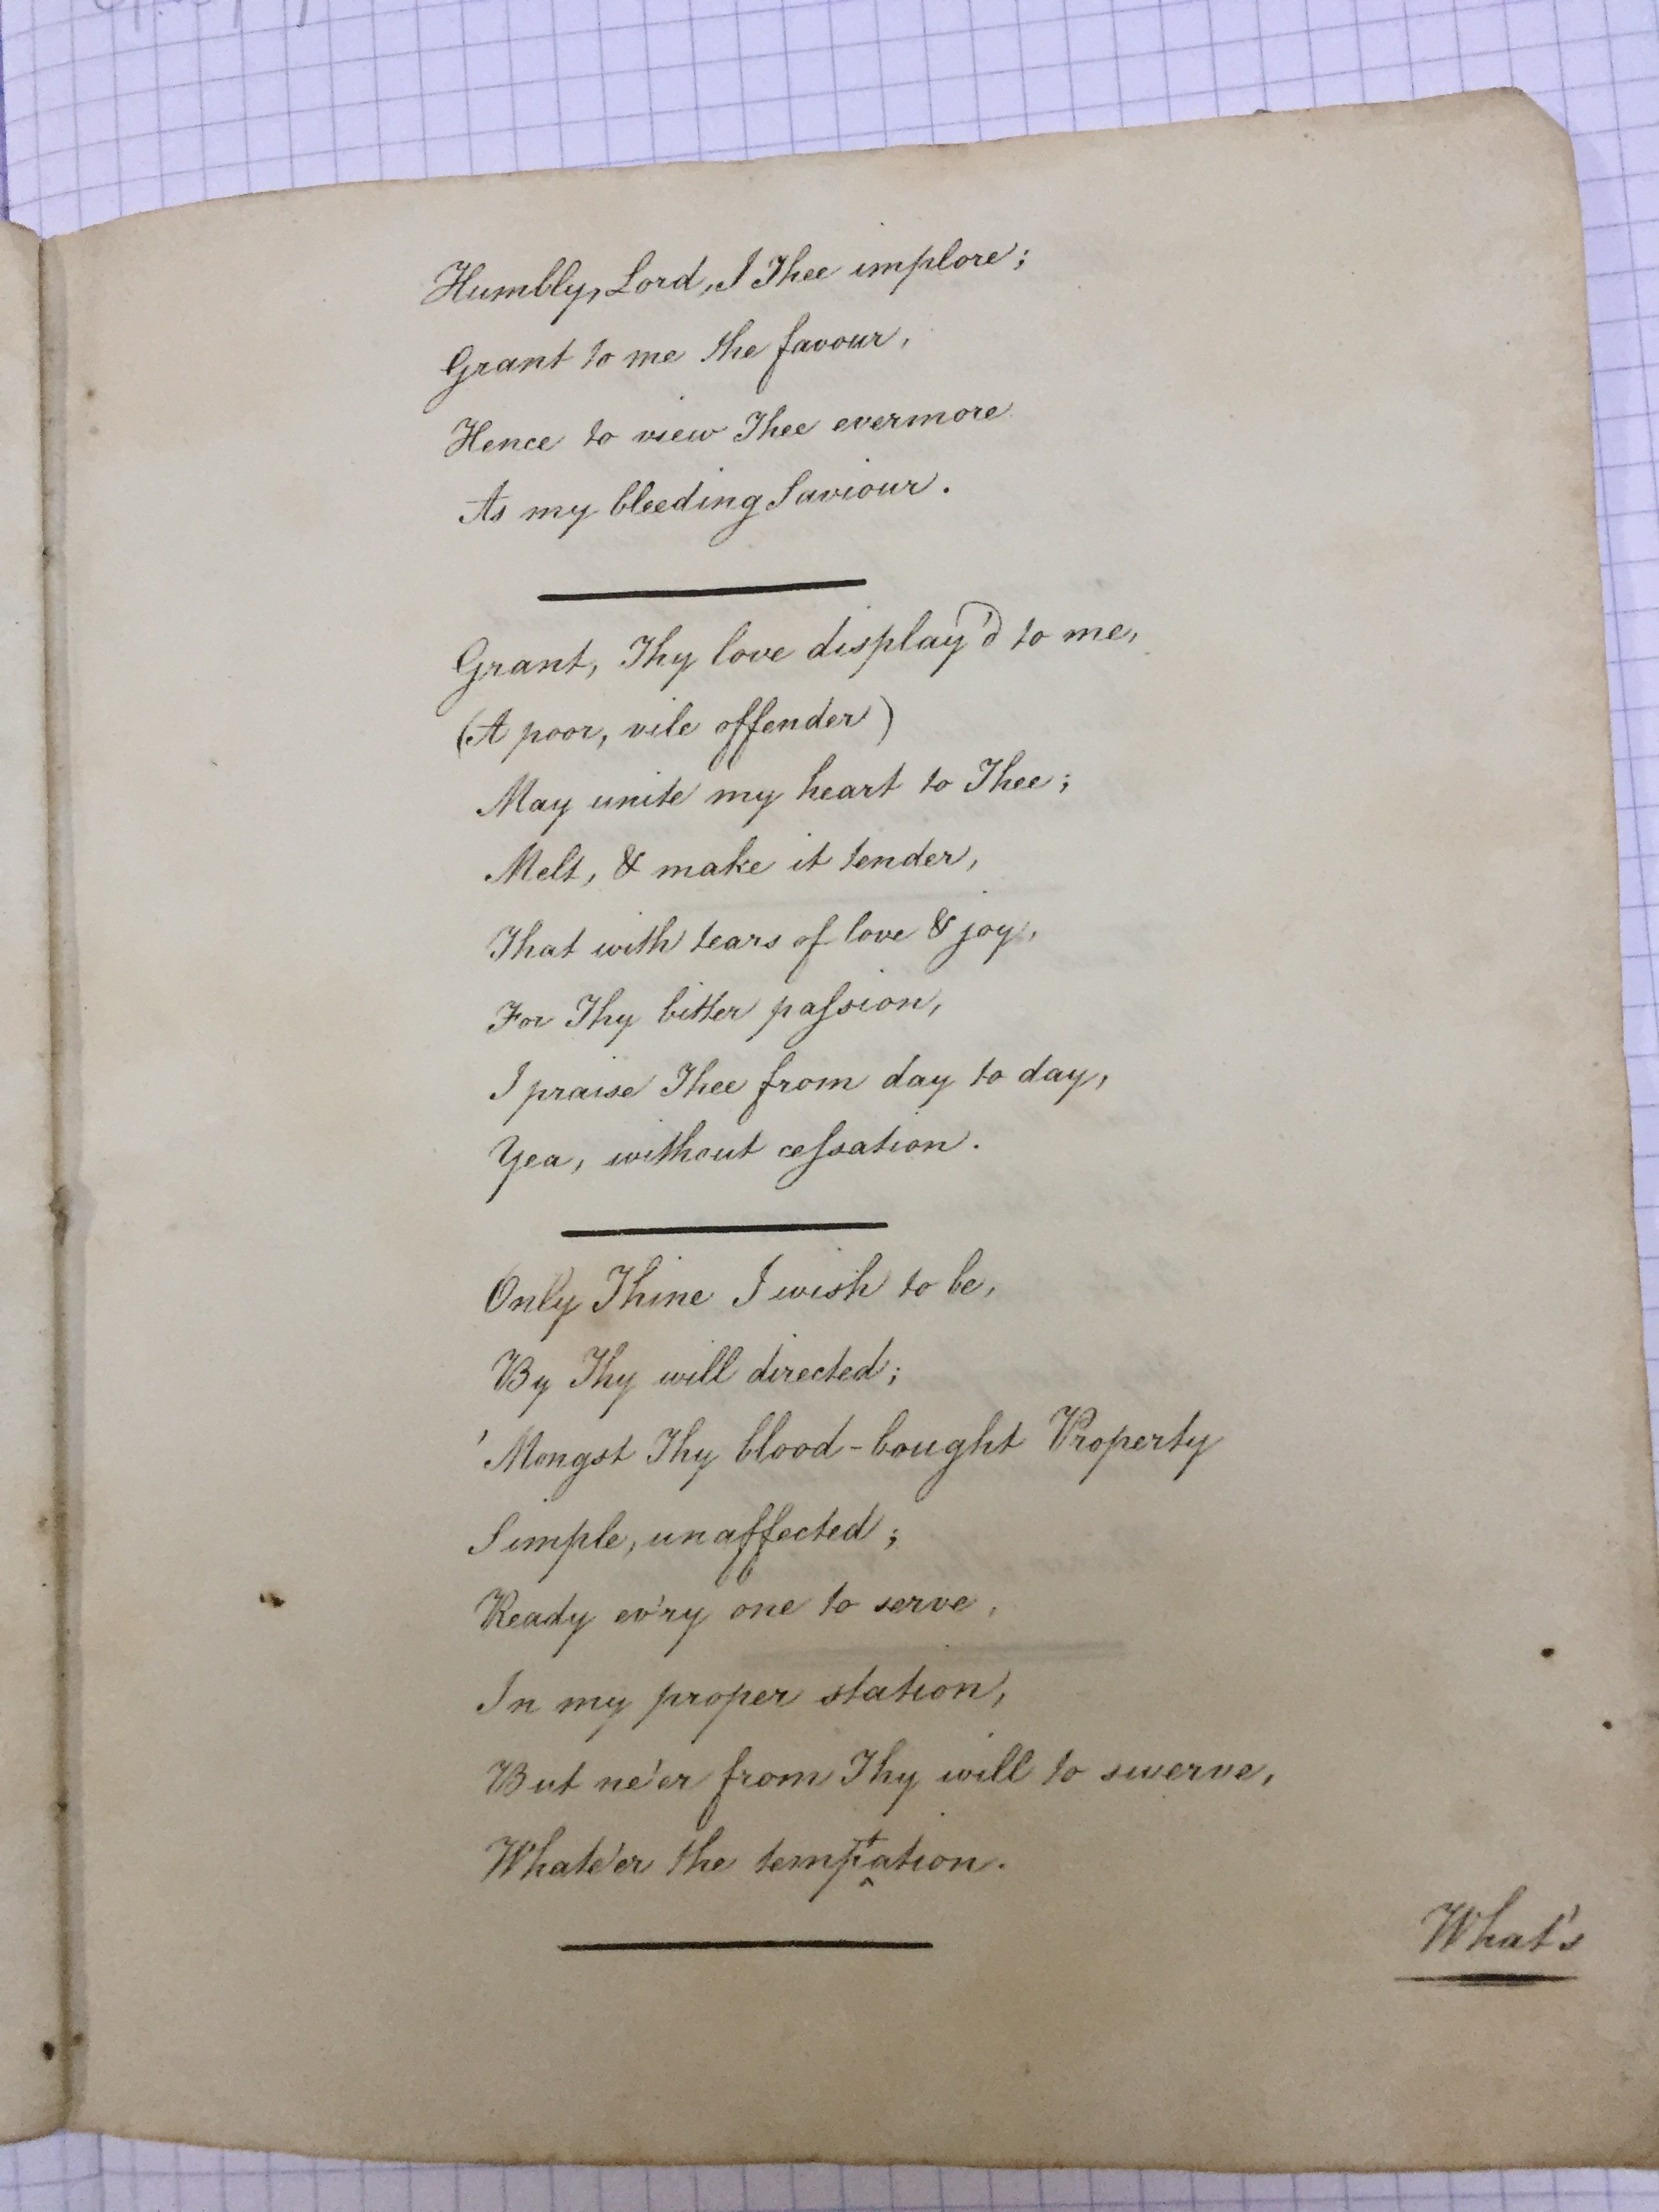 Humbly, Lord, I Thee implore;
Grant to me the favour,
Hence to view Thee evermore
As my bleeding Saviour.
Grant, Thy love display'd to me,
(A poor, vile offender)
May unite my heart to Thee;
Melt, & make it tender,
That with tears of love & joy,
For Thy bitter paſsion,
I praise Thee from day to day,
Yea, without ceſsation.
Only Thine I wish to be,
By Thy will directed;
'Mongst Thy blood-bought Property
Simple, unaffected;
Ready ev'ry one to serve,
In my proper station,
But ne'er from Thy will to swerve,
Whate'er the temptation.
What's